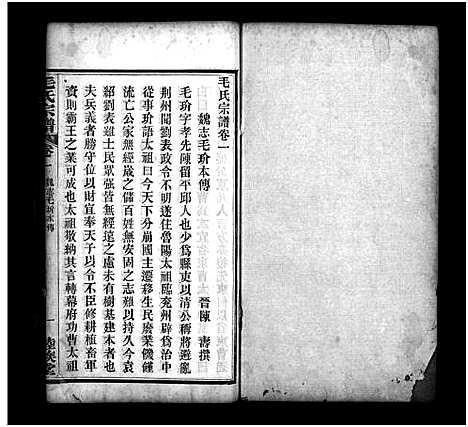 毛氏宗譜卷一
魏志毛玠本傳　晉陳壽撰
毛玠字孝先陳留平邱人也少為縣吏以清公稱將避亂
荊州聞劉表政令不明遂往魯陽太祖臨兗州辟為治中
從事玠語太祖曰今天下分崩國主遷移生民廢業饑饉
流亡公家無經歲之儲百姓無安固之志難以持久今袁
紹劉表雖士民眾强皆無經遠之慮未有樹基建本者也
夫兵義者勝守位以財宜奉天子以令不臣修耕植畜軍
資則霸王之業可成也太祖敬納其言轉幕府功曹太祖
毛氏宗譜
卷一
魏志毛玠本傳
一